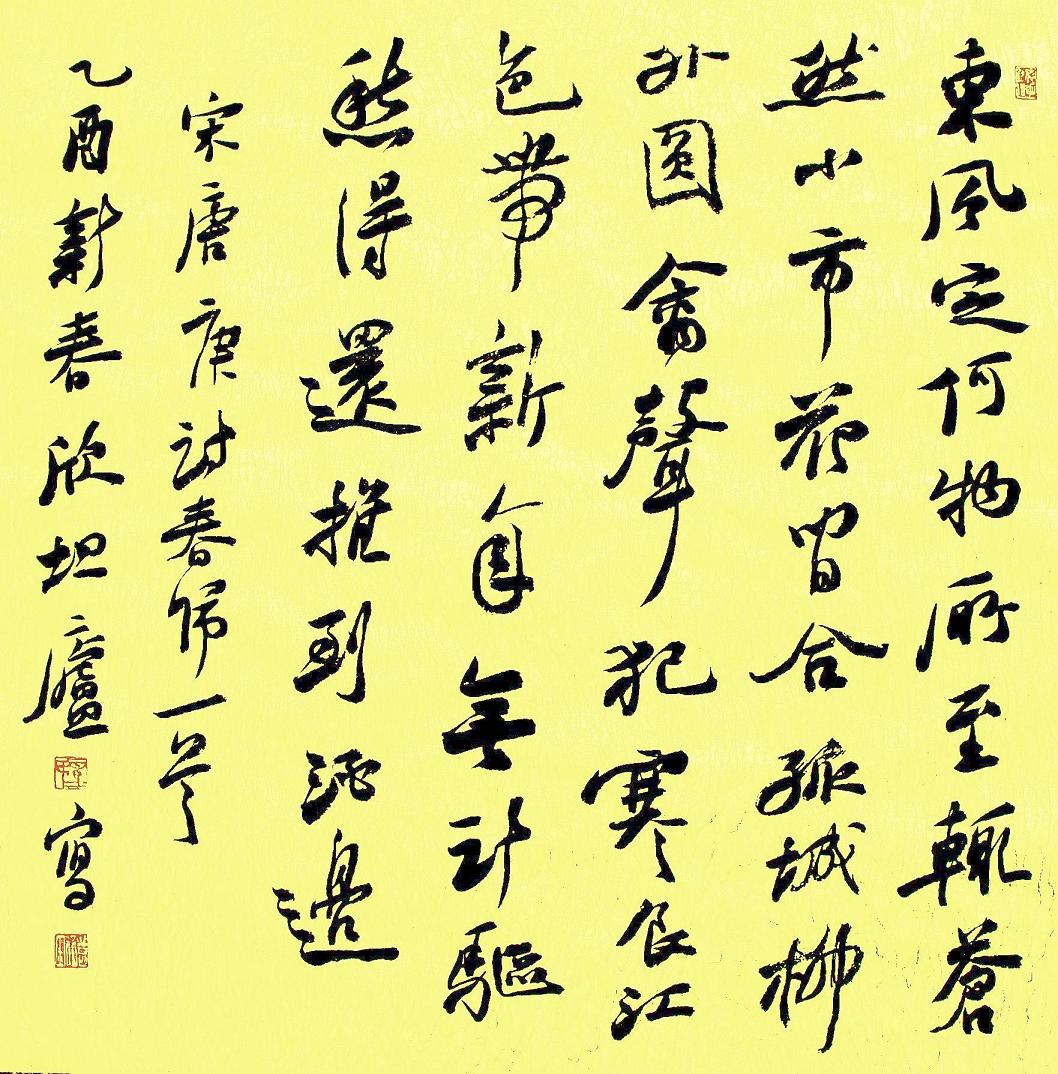 東風定何物所至輒蒼
然小市花間合孤城柳
外圓禽聲犯寒食江
色帶新年無計驅
愁得還推到酒邊
宋唐庚詩春歸一首
乙酉新春於坦廬寫